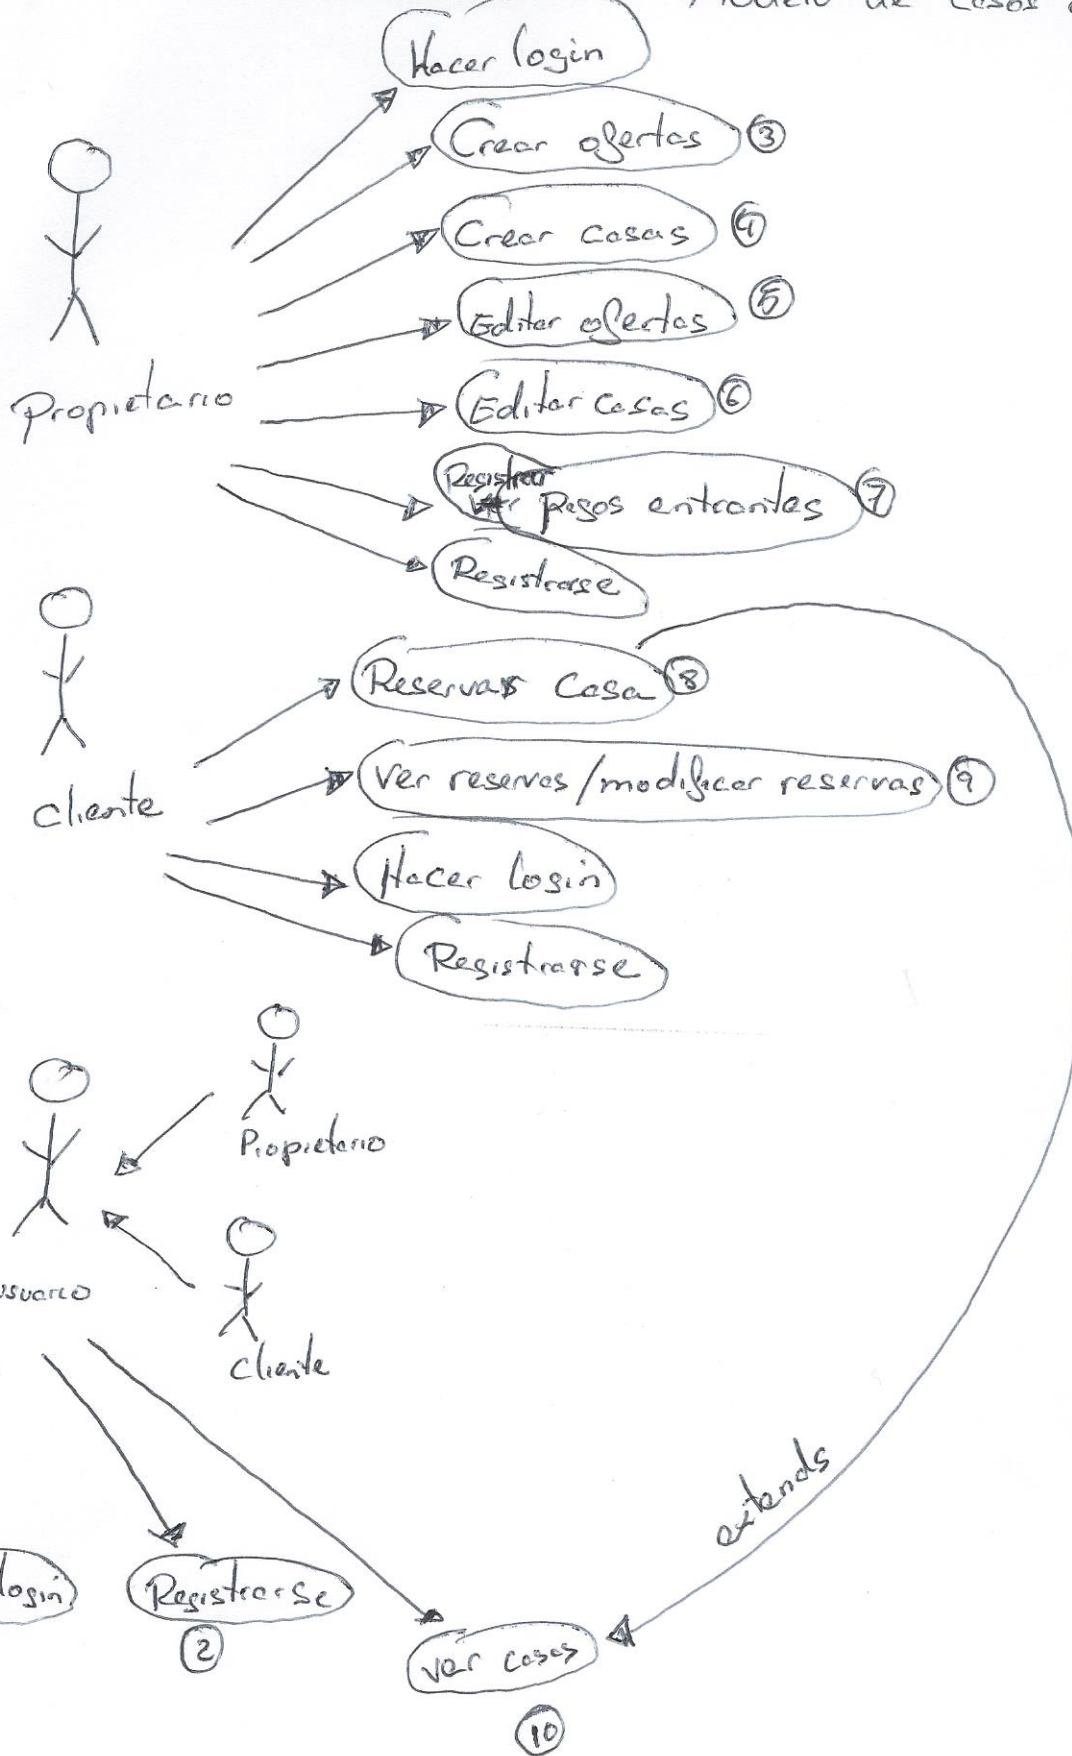 Modelo de casos
Hacer login
Crear ofertas 3
Crear casas 4
Editar ofertas 5
Propietario
Editar casas 6
Registrar
pagos entrantes 7
Registrarse
Reservar casa 8
Ver reservas/modificar reservas 9
Cliente
Hacer login
Registrarse
Propietario
usuario
Cliente
extends
login
Registrarse
2
ver casas
10